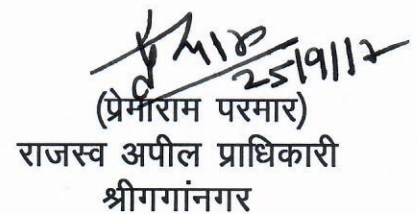 25/9/17
(प्रेमाराम परमार)
राजस्व अपील प्राधिकारी
श्रीगगांनगर